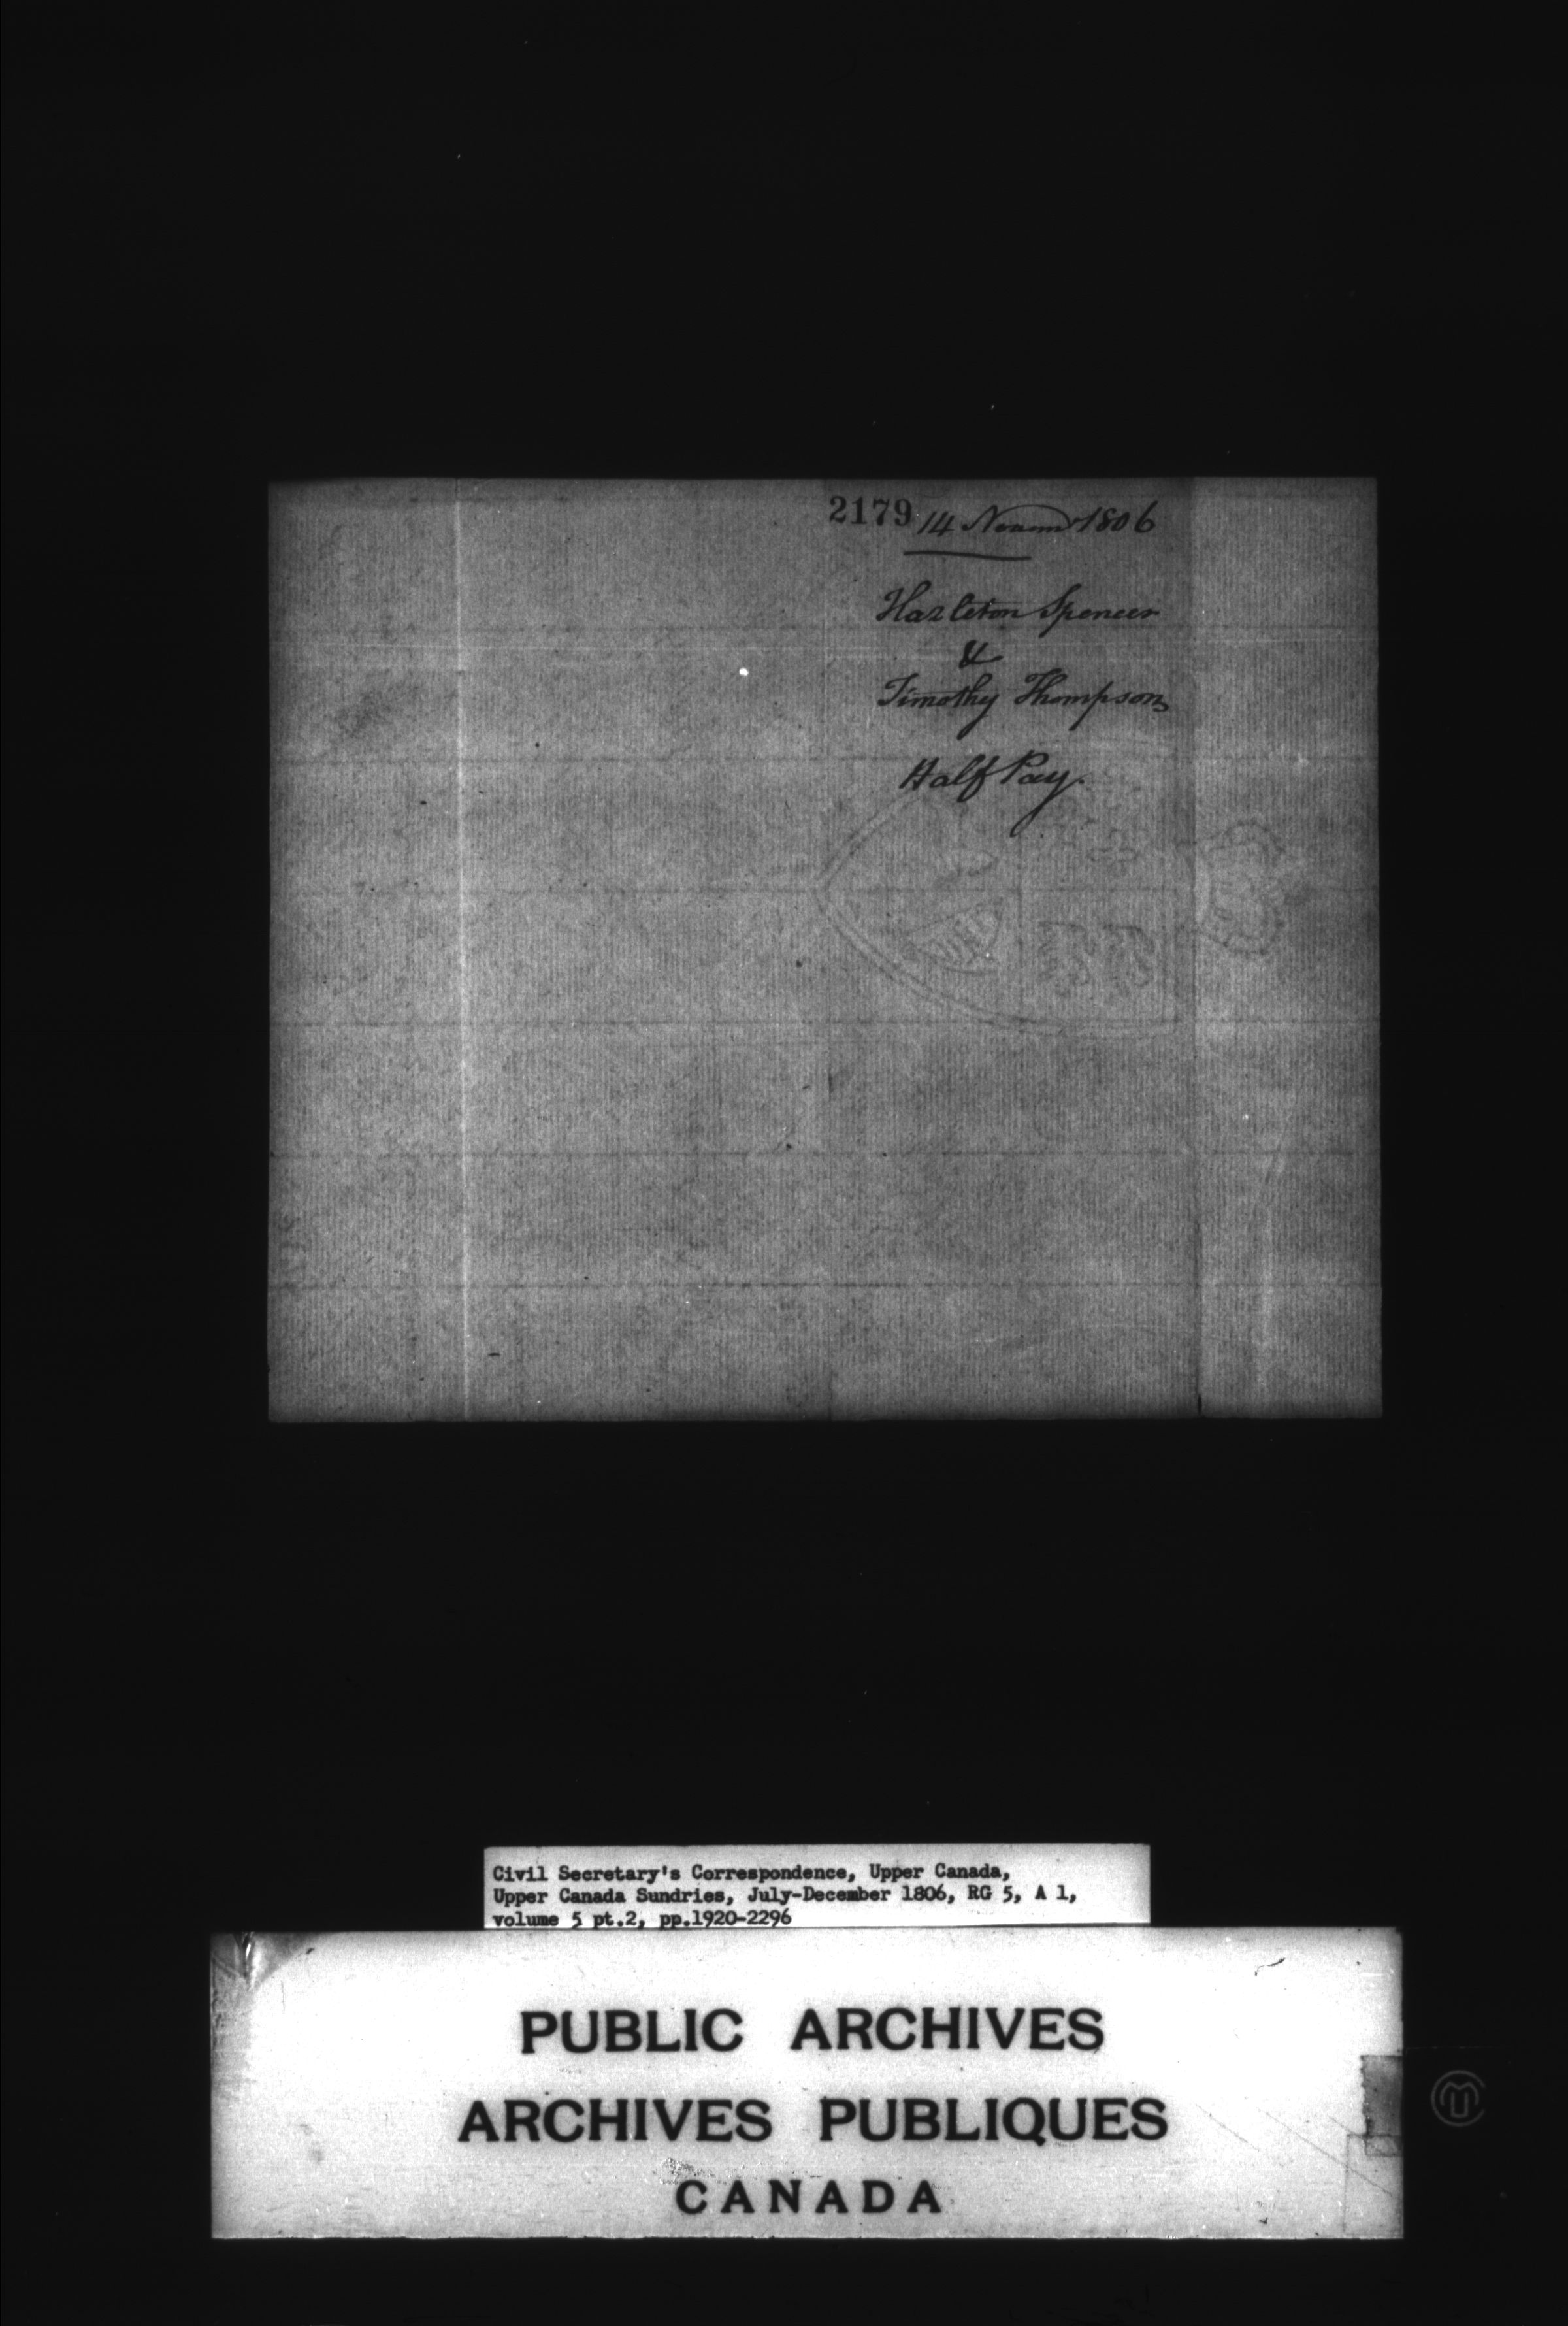 2179 14 Novemr 1806
Hazleton Spencer
&
Timothy Thompson
Half Pay.
Civil Secretary's Correspondence, Upper Canada,
Upper Canada Sundries, July-December 1806, RG 5, A 1,
volume 5 pt.2, pp.1920-2296
PUBLIC ARCHIVES
ARCHIVES PUBLIQUES
CANADA